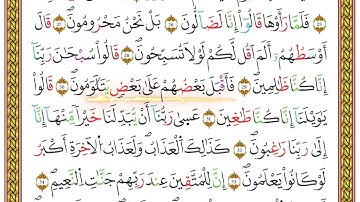 ٢٥ فَلَمَّا رَأَوْهَا قَالُوٓا۟ إِنَّا لَضَآلُّونَ ٢٦ بَلْ نَحْنُ مَحْرُومُونَ ٢٧ قَالَ
أَوْسَطُهُمْ أَلَمْ أَقُل لَّكُمْ لَوْلَا تُسَبِّحُونَ ٢٨ قَالُوا۟ سُبْحَٰنَ رَبِّنَآ
إِنَّا كُنَّا ظَٰلِمِينَ ٢٩ فَأَقْبَلَ بَعْضُهُمْ عَلَىٰ بَعْضٍ يَتَلَٰوَمُونَ ٣٠ قَالُوا۟
يَٰوَيْلَنَآ إِنَّا كُنَّا طَٰغِينَ ٣١ عَسَىٰ رَبُّنَآ أَن يُبْدِلَنَا خَيْرًا مِّنْهَآ إِنَّآ
إِلَىٰ رَبِّنَا رَٰغِبُونَ ٣٢ كَذَٰلِكَ ٱلْعَذَابُ وَلَعَذَابُ ٱلْءَاخِرَةِ أَكْبَرُ
لَوْ كَانُوا۟ يَعْلَمُونَ ٣٣ إِنَّ لِلْمُتَّقِينَ عِندَ رَبِّهِمْ جَنَّٰتِ ٱلنَّعِيمِ ٣٤